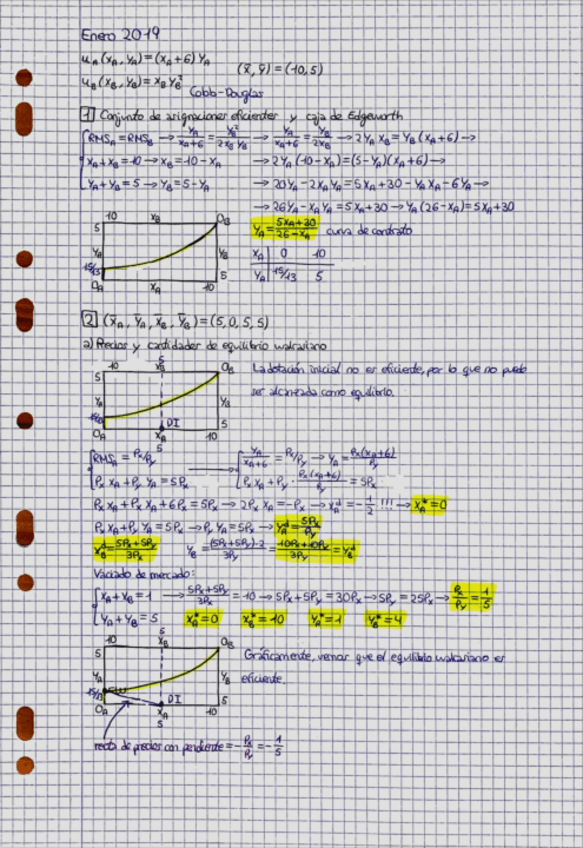 Enero 2019
u_A (x_A, y_A) = (x_A + 6) y_A
(x̄, ȳ) = (10, 5)
u_B (x_B, y_B) = x_B y_B²
Cobb-Douglas
1 Conjunto de asignaciones eficientes y caja de Edgeworth
RMS_A = RMS_B → y_A/(x_A+6) = y_B²/(2x_B y_B) → y_A/(x_A+6) = y_B/(2x_B) → 2y_A x_B = y_B (x_A+6) →
x_A + x_B = 10 → x_B = 10 - x_A → 2y_A (10 - x_A) = (5 - y_A)(x_A+6) →
y_A + y_B = 5 → y_B = 5 - y_A → 20y_A - 2x_A y_A = 5x_A + 30 - y_A x_A - 6y_A →
→ 26y_A - x_A y_A = 5x_A + 30 → y_A (26 - x_A) = 5x_A + 30
10 x_B O_B
5
y_A = (5x_A + 30)/(26 - x_A) curva de contrato
y_A y_B
x_A 0 10
15/13 5
y_A 15/13 5
O_A x_A 10
2 (x̄_A, ȳ_A, x̄_B, ȳ_B) = (5, 0, 5, 5)
a) Precios y cantidades de equilibrio walrasiano
10 5 x_B O_B
5
La dotación inicial no es eficiente, por lo que no puede
ser alcanzada como equilibrio.
y_A y_B
DI
5
O_A x_A 10
5
RMS_A = Px/Py → y_A/(x_A+6) = Px/Py → y_A = Px(x_A+6)/Py
Px x_A + Py y_A = 5Px Px x_A + Py · Px(x_A+6)/Py = 5Px
Px x_A + Px x_A + 6Px = 5Px → 2Px x_A = -Px → x_A^d = -1/2 !!! → x_A* = 0
Px x_A + Py y_A = 5Px → Py y_A = 5Px → y_A^d = 5Px/Py
x_B^d = (5Px + 5Py)/3Px y_B = (5Px + 5Py)·2/3Py = (10Px + 10Py)/3Py = y_B^d
Vaciado de mercado:
x_A + x_B = 1 → (5Px + 5Py)/3Px = 10 → 5Px + 5Py = 30Px → 5Py = 25Px → Px/Py = 1/5
y_A + y_B = 5 x_A* = 0 x_B* = 10 y_A* = 1 y_B* = 4
10 5 x_B O_B
5
Gráficamente, vemos que el equilibrio walrasiano es
eficiente.
y_A y_B
15/13
DI
5
O_A x_A 10
5
recta de precios con pendiente = -Px/Py = -1/5